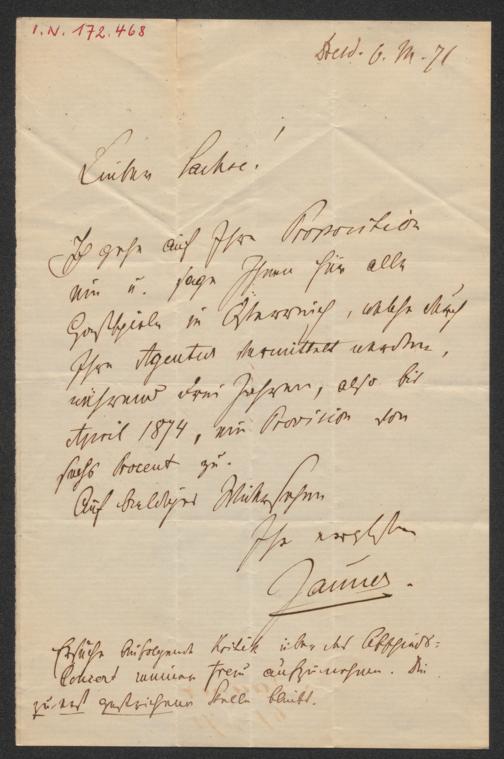 I.N. 172.468
Dresd. 6. M. 71
Lieber Sachse!
Ich gehe auf Ihre Proposition
ein u. sage Ihnen für alle
Gastspiele in Österreich, welche durch
Ihre Agentur vermittelt werden,
während drei Jahren, also bis
April 1874, ein Provision von
sechs Procent zu.
Auf baldiges Wiedersehen
Ihr ergebster
Jauner.
Ersuche beifolgende Kritik über das Abschieds=
Concert meiner Frau aufzunehmen. Die
zuerst gestrichene Stelle bleibt.